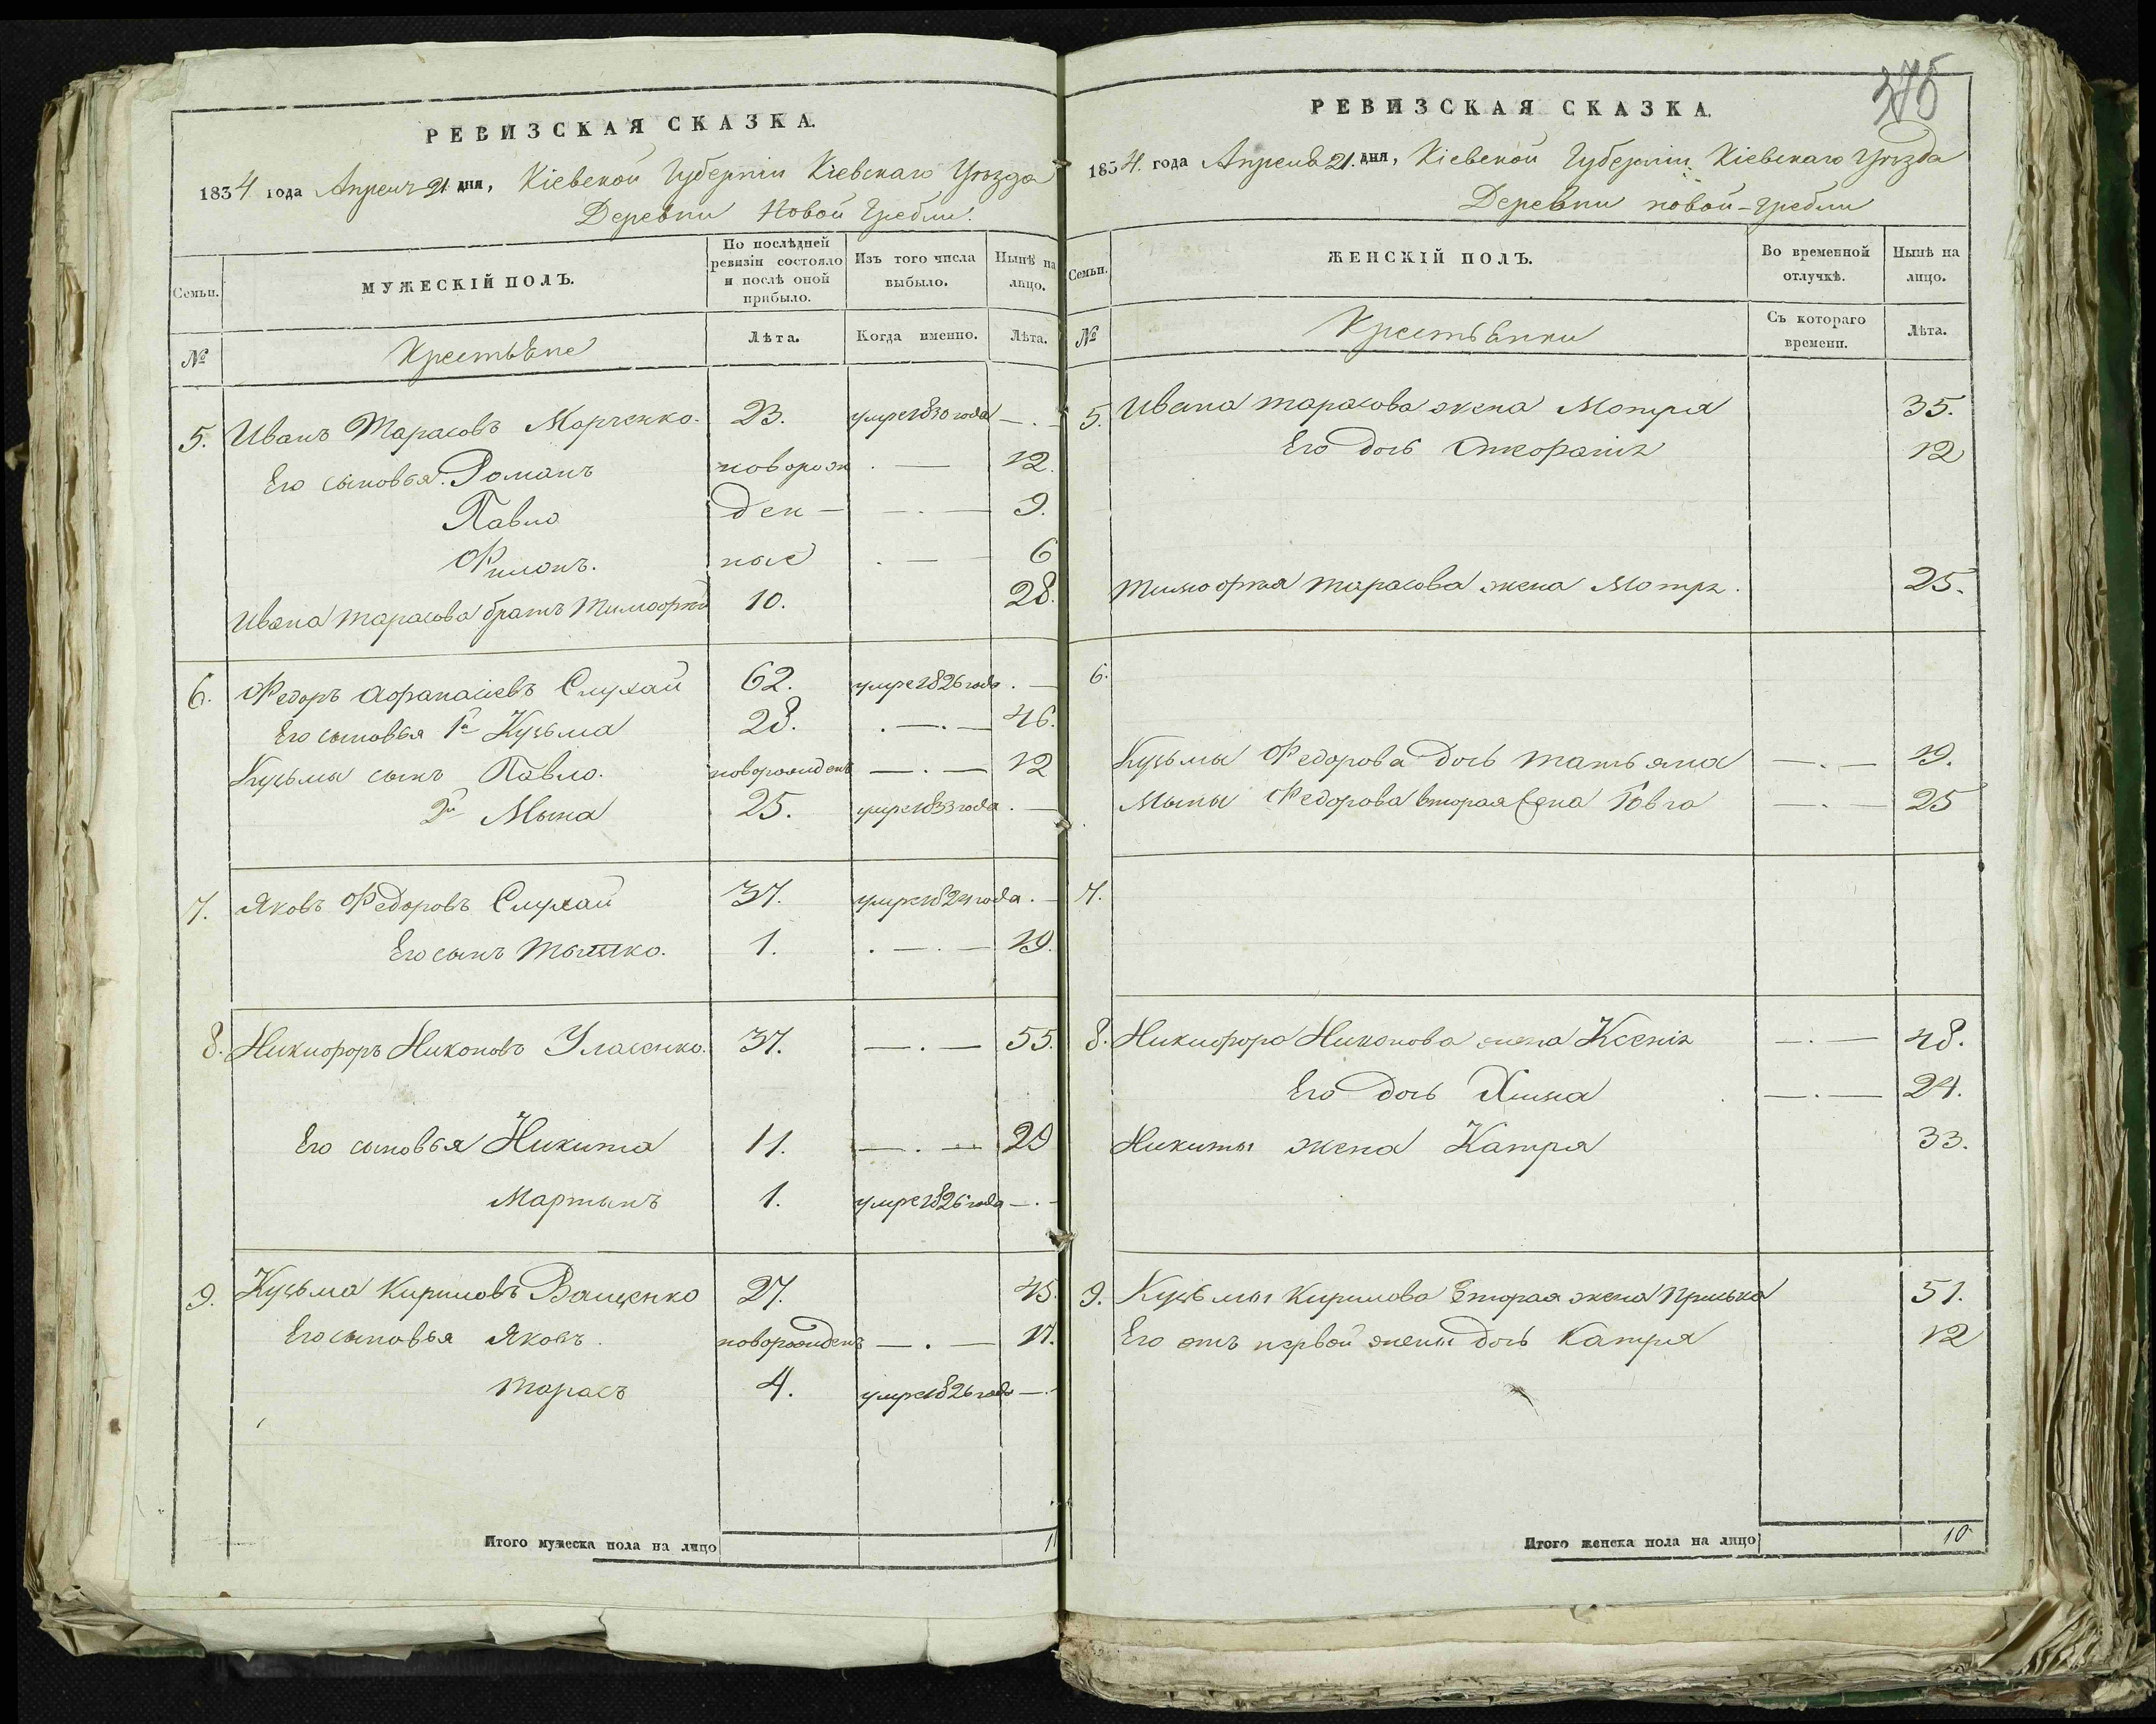 375
РЕВИЗСКАЯ СКАЗКА.
1834 года Апреля 21 дня, Кіевской Губерніи Кіевскаго Уѣзда
Деревни Новой Гребли.
Семьи.
МУЖЕСКІЙ ПОЛЪ.
По послѣдней ревизіи состояло и послѣ оной прибыло.
Изъ того числа выбыло.
Нынѣ на лицо.
№
Крестьяне
Лѣта.
Когда именно.
Лѣта.
5. Иванъ Тарасовъ Марченко. 23. умре 1830 года —.—
Его сыновья. Романъ новорож . — 12.
Павло ден — —.— 9.
Филонъ. ные . — 6
Ивана Тарасова братъ Тимофей 10. 28.
6. Федоръ Афанасіевъ Слухай 62. умре 1826 года . —
Его сыновья 1й Кузьма 28. . —.— 46.
Кузьмы сынъ Павло. новорожденъ —.— 12
2й Мына 25. умре 1833 года . —
7. Яковъ Федоровъ Слухай 37. умре 1824 года . —
Его сынъ Тышко. 1. . —.— 19.
8. Никифоръ Никоновъ Уласенко. 37. —.— 55.
Его сыновья Никита 11. —.— 29
Мартынъ 1. умре 1826 года —.—
9. Кузьма Кириловъ Ващенко 27. 45.
Его сыновья Яковъ. новорожденъ —.— 17.
Тарасъ 4. умре 1826 года —.—
Итого мужеска пола на лицо 11
РЕВИЗСКАЯ СКАЗКА.
1834. года Апреля 21. дня, Кіевской Губерніи Кіевскаго Уѣзда
Деревни новой-Гребли
Семьи.
ЖЕНСКІЙ ПОЛЪ.
Во временной отлучкѣ.
Нынѣ на лицо.
№
Крестьянки
Съ котораго времени.
Лѣта.
5. Ивана Тарасова жена Мотря 35.
Его дочь 12
Тимофея Тарасова жена Мотря. 25.
6.
Кузьмы Федорова дочь Татьяна —.— 19.
Мыны Федорова вторая жена —.— 25
7.
8. Никифора Никонова жена Ксенія —.— 48.
Его дочь Химка —.— 24.
Никиты жена Катря 33.
9. Кузьмы Кирилова вторая жена Приська 51.
Его отъ первой жены дочь Катря 12
Итого женска пола на лицо 10